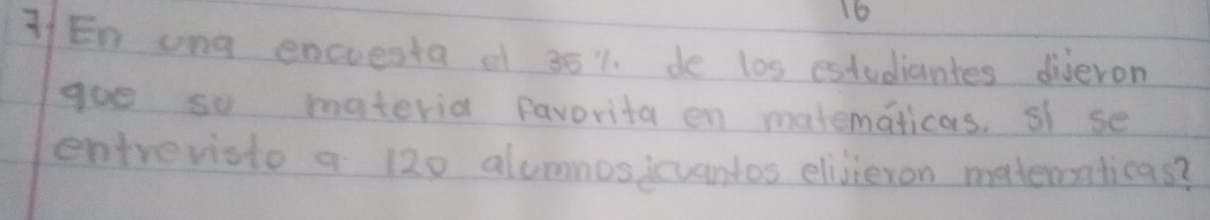 16
7 En una encuesta el 35 %. de los estudiantes dijeron
que su materia favorita en matemáticas. si se
entrevisto a 120 alumnos ¿cuantos elijieron matematicas?